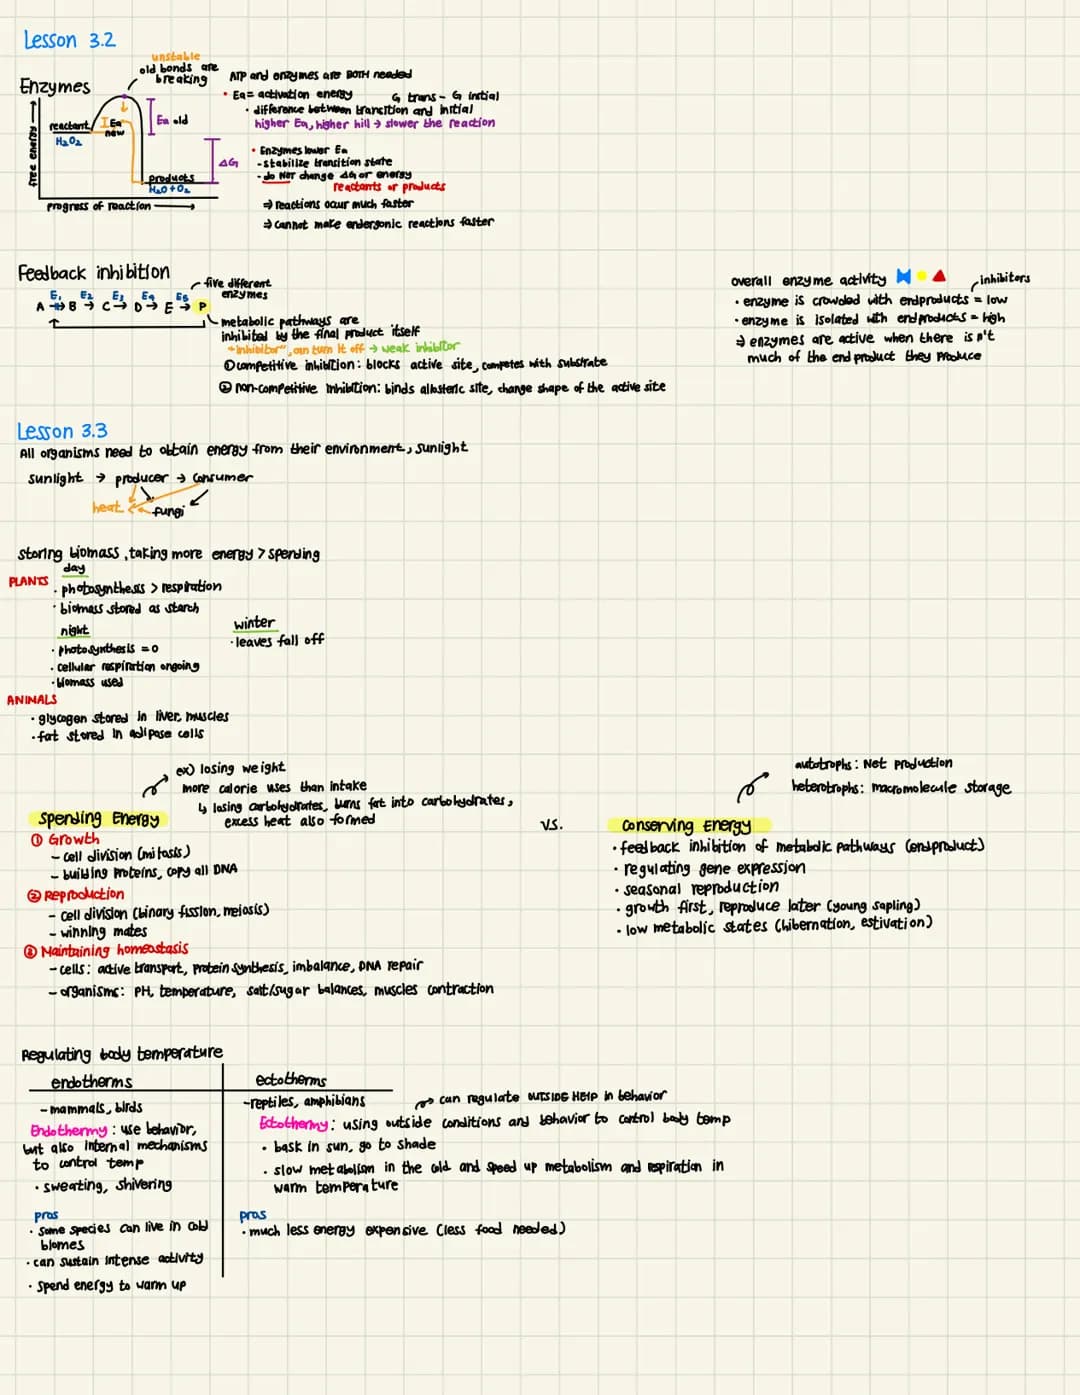 Lesson 3.2
unstable
old bonds are
breaking
Enzymes
free energy →
reactant
H₂O₂
Ea
new
Ea old
ΔG
products
H₂O + O₂
progress of reaction →
ATP and enzymes are BOTH needed
• Ea = activation energy G trans - G initial
• difference between transition and initial
higher Ea, higher hill → slower the reaction
• Enzymes lower Ea
- stabilize transition state
- do NOT change ΔG or energy
reactants or products
⇒ reactions occur much faster
⇒ cannot make endergonic reactions faster
Feedback inhibition
five different
enzymes
E₁ E₂ E₃ E₄ E₅
A → B → C → D → E → P
metabolic pathways are
inhibited by the final product itself
"inhibitor", can turn it off → weak inhibitor
① competitive inhibition: blocks active site, competes with substrate
② non-competitive inhibition: binds allosteric site, change shape of the active site
overall enzyme activity
inhibitors
• enzyme is crowded with endproducts = low
• enzyme is isolated with endproducts = high
⇒ enzymes are active when there isn't
much of the end product they produce
Lesson 3.3
All organisms need to obtain energy from their environment, sunlight
sunlight → producer → consumer
heat
fungi
storing biomass, taking more energy > spending
PLANTS
day
• photosynthesis > respiration
• biomass stored as starch
night
• photosynthesis = 0
• cellular respiration ongoing
• biomass used
winter
• leaves fall off
ANIMALS
• glycogen stored in liver, muscles
• fat stored in adipose cells
ex) losing weight
more calorie uses than intake
↳ losing carbohydrates, burns fat into carbohydrates,
excess heat also formed
Spending Energy
① Growth
- cell division (mitosis)
- building proteins, copy all DNA
② Reproduction
- cell division (binary fission, meiosis)
- winning mates
③ Maintaining homeostasis
- cells: active transport, protein synthesis, imbalance, DNA repair
- organisms: PH, temperature, salt/sugar balances, muscles contraction
vs.
autotrophs: Net production
heterotrophs: macromolecule storage
Conserving Energy
• feedback inhibition of metabolic pathways (endproduct)
• regulating gene expression
• seasonal reproduction
• growth first, reproduce later (young sapling)
• low metabolic states (hibernation, estivation)
Regulating body temperature
endotherms
- mammals, birds
Endothermy: use behavior,
but also internal mechanisms
to control temp
• sweating, shivering
pros
• some species can live in cold
biomes
• can sustain intense activity
• spend energy to warm up
ectotherms
- reptiles, amphibians
can regulate OUTSIDE HElP in behavior
Ectothermy: using outside conditions and behavior to control body temp
• bask in sun, go to shade
• slow metabolism in the cold and speed up metabolism and respiration in
warm temperature
pros
• much less energy expensive (less food needed)